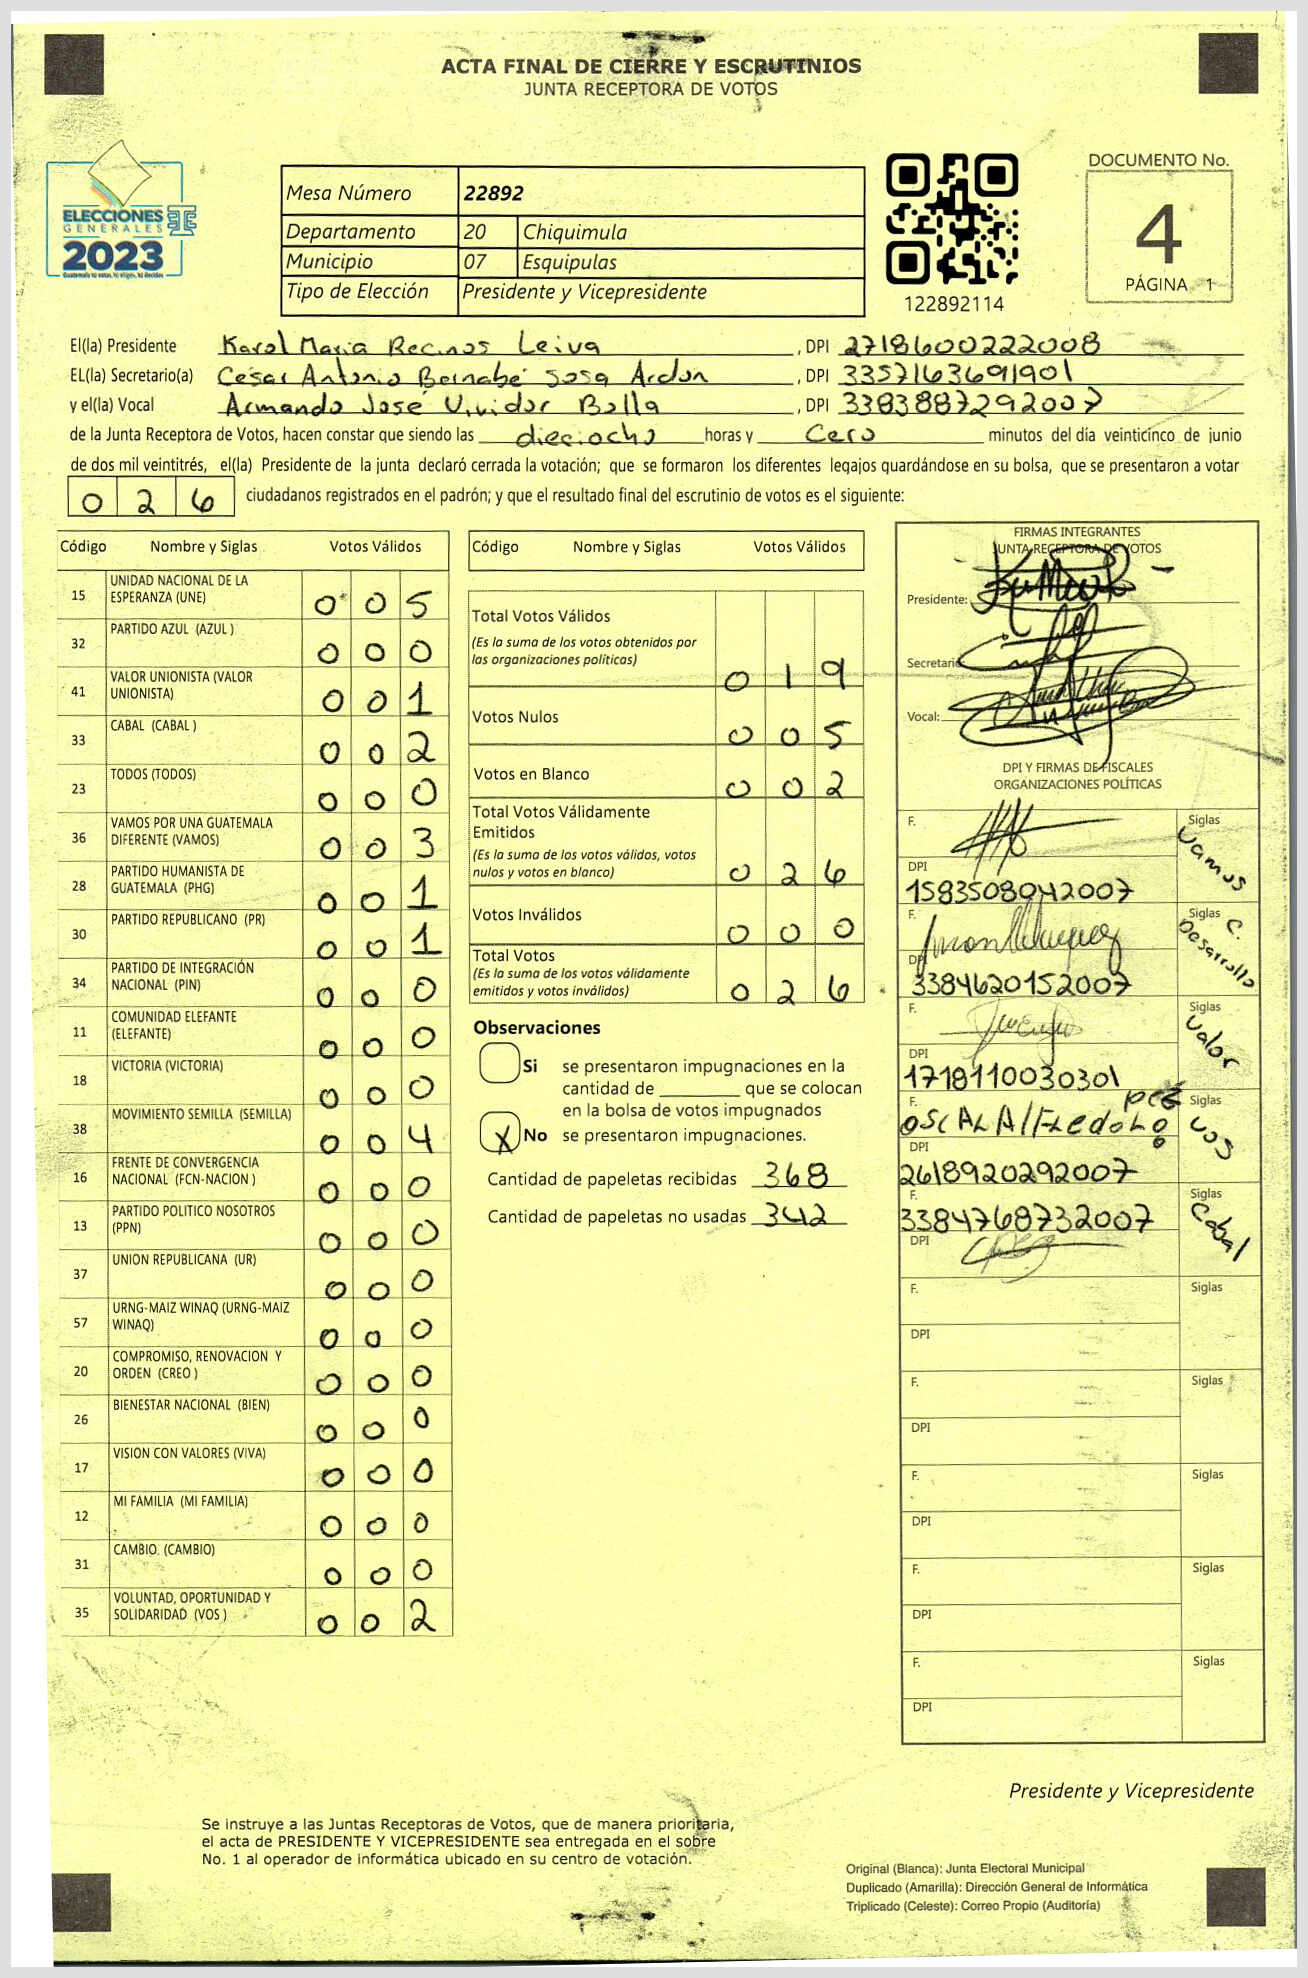 ACTA FINAL DE CIERRE Y ESCRUTINIOS
JUNTA RECEPTORA DE VOTOS
ELECCIONES
GENERALES
2023
Mesa Número 22892
Departamento 20 Chiquimula
Municipio 07 Esquipulas
Tipo de Elección Presidente y Vicepresidente
122892114
DOCUMENTO No.
4
PÁGINA 1
El(la) Presidente Karol Maria Recinos Leiva , DPI 2718600222008
EL(la) Secretario(a) César Antonio Bernabé Sosa Ardon , DPI 3357163691901
y el(la) Vocal Armando José Vividor Balla , DPI 3383887292007
de la Junta Receptora de Votos, hacen constar que siendo las dieciocho horas y Cero minutos del día veinticinco de junio
de dos mil veintitrés, el(la) Presidente de la junta declaró cerrada la votación; que se formaron los diferentes legajos guardándose en su bolsa, que se presentaron a votar
0 2 6 ciudadanos registrados en el padrón; y que el resultado final del escrutinio de votos es el siguiente:
Código Nombre y Siglas Votos Válidos
15 UNIDAD NACIONAL DE LA ESPERANZA (UNE) 0 0 5
32 PARTIDO AZUL (AZUL ) 0 0 0
41 VALOR UNIONISTA (VALOR UNIONISTA) 0 0 1
33 CABAL (CABAL ) 0 0 2
23 TODOS (TODOS) 0 0 0
36 VAMOS POR UNA GUATEMALA DIFERENTE (VAMOS) 0 0 3
28 PARTIDO HUMANISTA DE GUATEMALA (PHG) 0 0 1
30 PARTIDO REPUBLICANO (PR) 0 0 1
34 PARTIDO DE INTEGRACIÓN NACIONAL (PIN) 0 0 0
11 COMUNIDAD ELEFANTE (ELEFANTE) 0 0 0
18 VICTORIA (VICTORIA) 0 0 0
38 MOVIMIENTO SEMILLA (SEMILLA) 0 0 4
16 FRENTE DE CONVERGENCIA NACIONAL (FCN-NACION ) 0 0 0
13 PARTIDO POLITICO NOSOTROS (PPN) 0 0 0
37 UNION REPUBLICANA (UR) 0 0 0
57 URNG-MAIZ WINAQ (URNG-MAIZ WINAQ) 0 0 0
20 COMPROMISO, RENOVACION Y ORDEN (CREO ) 0 0 0
26 BIENESTAR NACIONAL (BIEN) 0 0 0
17 VISION CON VALORES (VIVA) 0 0 0
12 MI FAMILIA (MI FAMILIA) 0 0 0
31 CAMBIO. (CAMBIO) 0 0 0
35 VOLUNTAD, OPORTUNIDAD Y SOLIDARIDAD (VOS ) 0 0 2
Código Nombre y Siglas Votos Válidos
Total Votos Válidos
(Es la suma de los votos obtenidos por
las organizaciones políticas) 0 1 9
Votos Nulos 0 0 5
Votos en Blanco 0 0 2
Total Votos Válidamente
Emitidos
(Es la suma de los votos válidos, votos
nulos y votos en blanco) 0 2 6
Votos Inválidos 0 0 0
Total Votos
(Es la suma de los votos válidamente
emitidos y votos inválidos) 0 2 6
Observaciones
Si se presentaron impugnaciones en la
cantidad de ________ que se colocan
en la bolsa de votos impugnados
X No se presentaron impugnaciones.
Cantidad de papeletas recibidas 368
Cantidad de papeletas no usadas 342
FIRMAS INTEGRANTES
JUNTA RECEPTORA DE VOTOS
Presidente:
Secretario
Vocal:
DPI Y FIRMAS DE FISCALES
ORGANIZACIONES POLÍTICAS
F. Siglas Vamos
DPI 1583508042007
F. Siglas C. Desarrollo
DPI 3384620152007
F. Siglas Valor
DPI 1718110030301
F. Siglas VOS
DPI 2618920292007
F. Siglas Cabal
3384768732007
DPI
F. Siglas
DPI
F. Siglas
DPI
F. Siglas
DPI
F. Siglas
DPI
F. Siglas
DPI
Presidente y Vicepresidente
Se instruye a las Juntas Receptoras de Votos, que de manera prioritaria,
el acta de PRESIDENTE Y VICEPRESIDENTE sea entregada en el sobre
No. 1 al operador de informática ubicado en su centro de votación.
Original (Blanca): Junta Electoral Municipal
Duplicado (Amarilla): Dirección General de Informática
Triplicado (Celeste): Correo Propio (Auditoría)